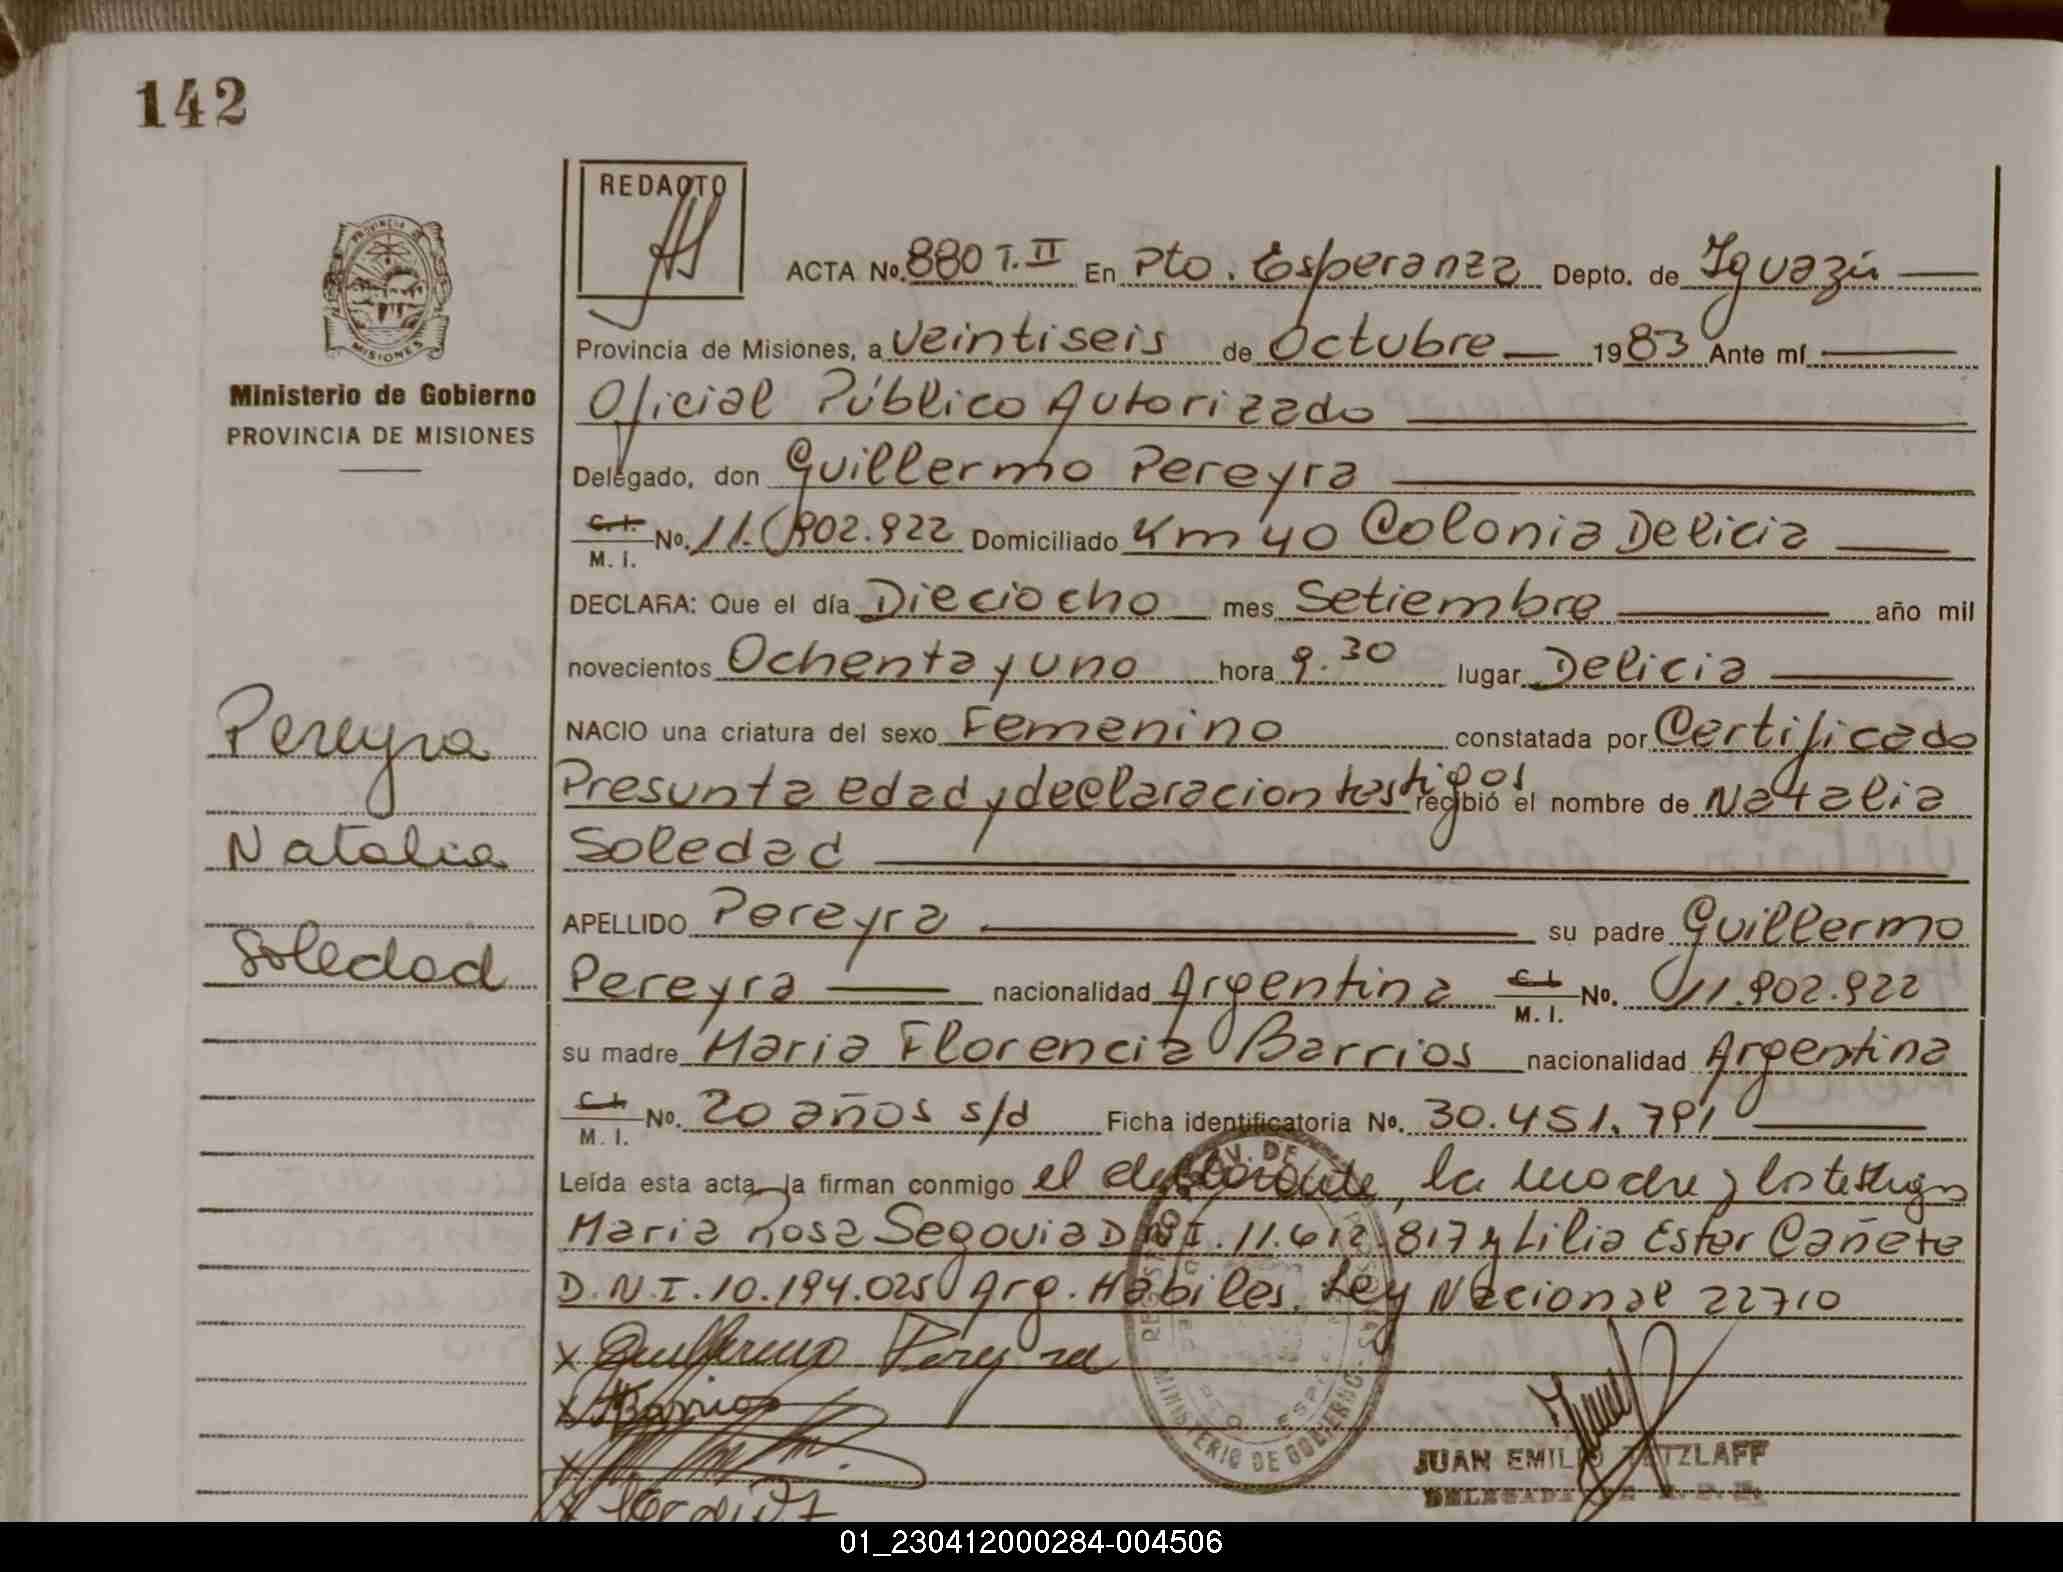 142
REDACTO
ACTA No. 880 T. II En Pto. Esperanza Depto. de Iguazú
Provincia de Misiones, a veintiseis de Octubre 1983 Ante mí
MISIONES
Ministerio de Gobierno
PROVINCIA DE MISIONES
Oficial Público Autorizado
Delegado, don Guillermo Pereyra
C. I. M. I. No. 11.902.922 Domiciliado Km 40 Colonia Delicia
DECLARA: Que el día Dieciocho mes Setiembre año mil
novecientos Ochenta y uno hora 9.30 lugar Delicia
NACIO una criatura del sexo Femenino constatada por Certificado
Presunta edad y declaracion testigos recibió el nombre de Natalia
Soledad
Pereyra
Natalia
Soledad
APELLIDO Pereyra su padre Guillermo
Pereyra nacionalidad Argentina C. I. M. I. No. 11.902.922
su madre Maria Florencia Barrios nacionalidad Argentina
C. I. M. I. No. 20 años s/d Ficha identificatoria No. 30.451.791
Leída esta acta, la firman conmigo el declarante, la madre y los testigos
Maria Rosa Segovia D.N.I. 11.612.817 y Lilia Ester Cañete
D.N.I. 10.194.025 Arg. Habiles. Ley Nacional 22710
x Guillermo Pereyra
x Barrios
x
x
MINISTERIO DE GOBIERNO
JUAN EMILIO
DELEGADA
01_230412000284-004506